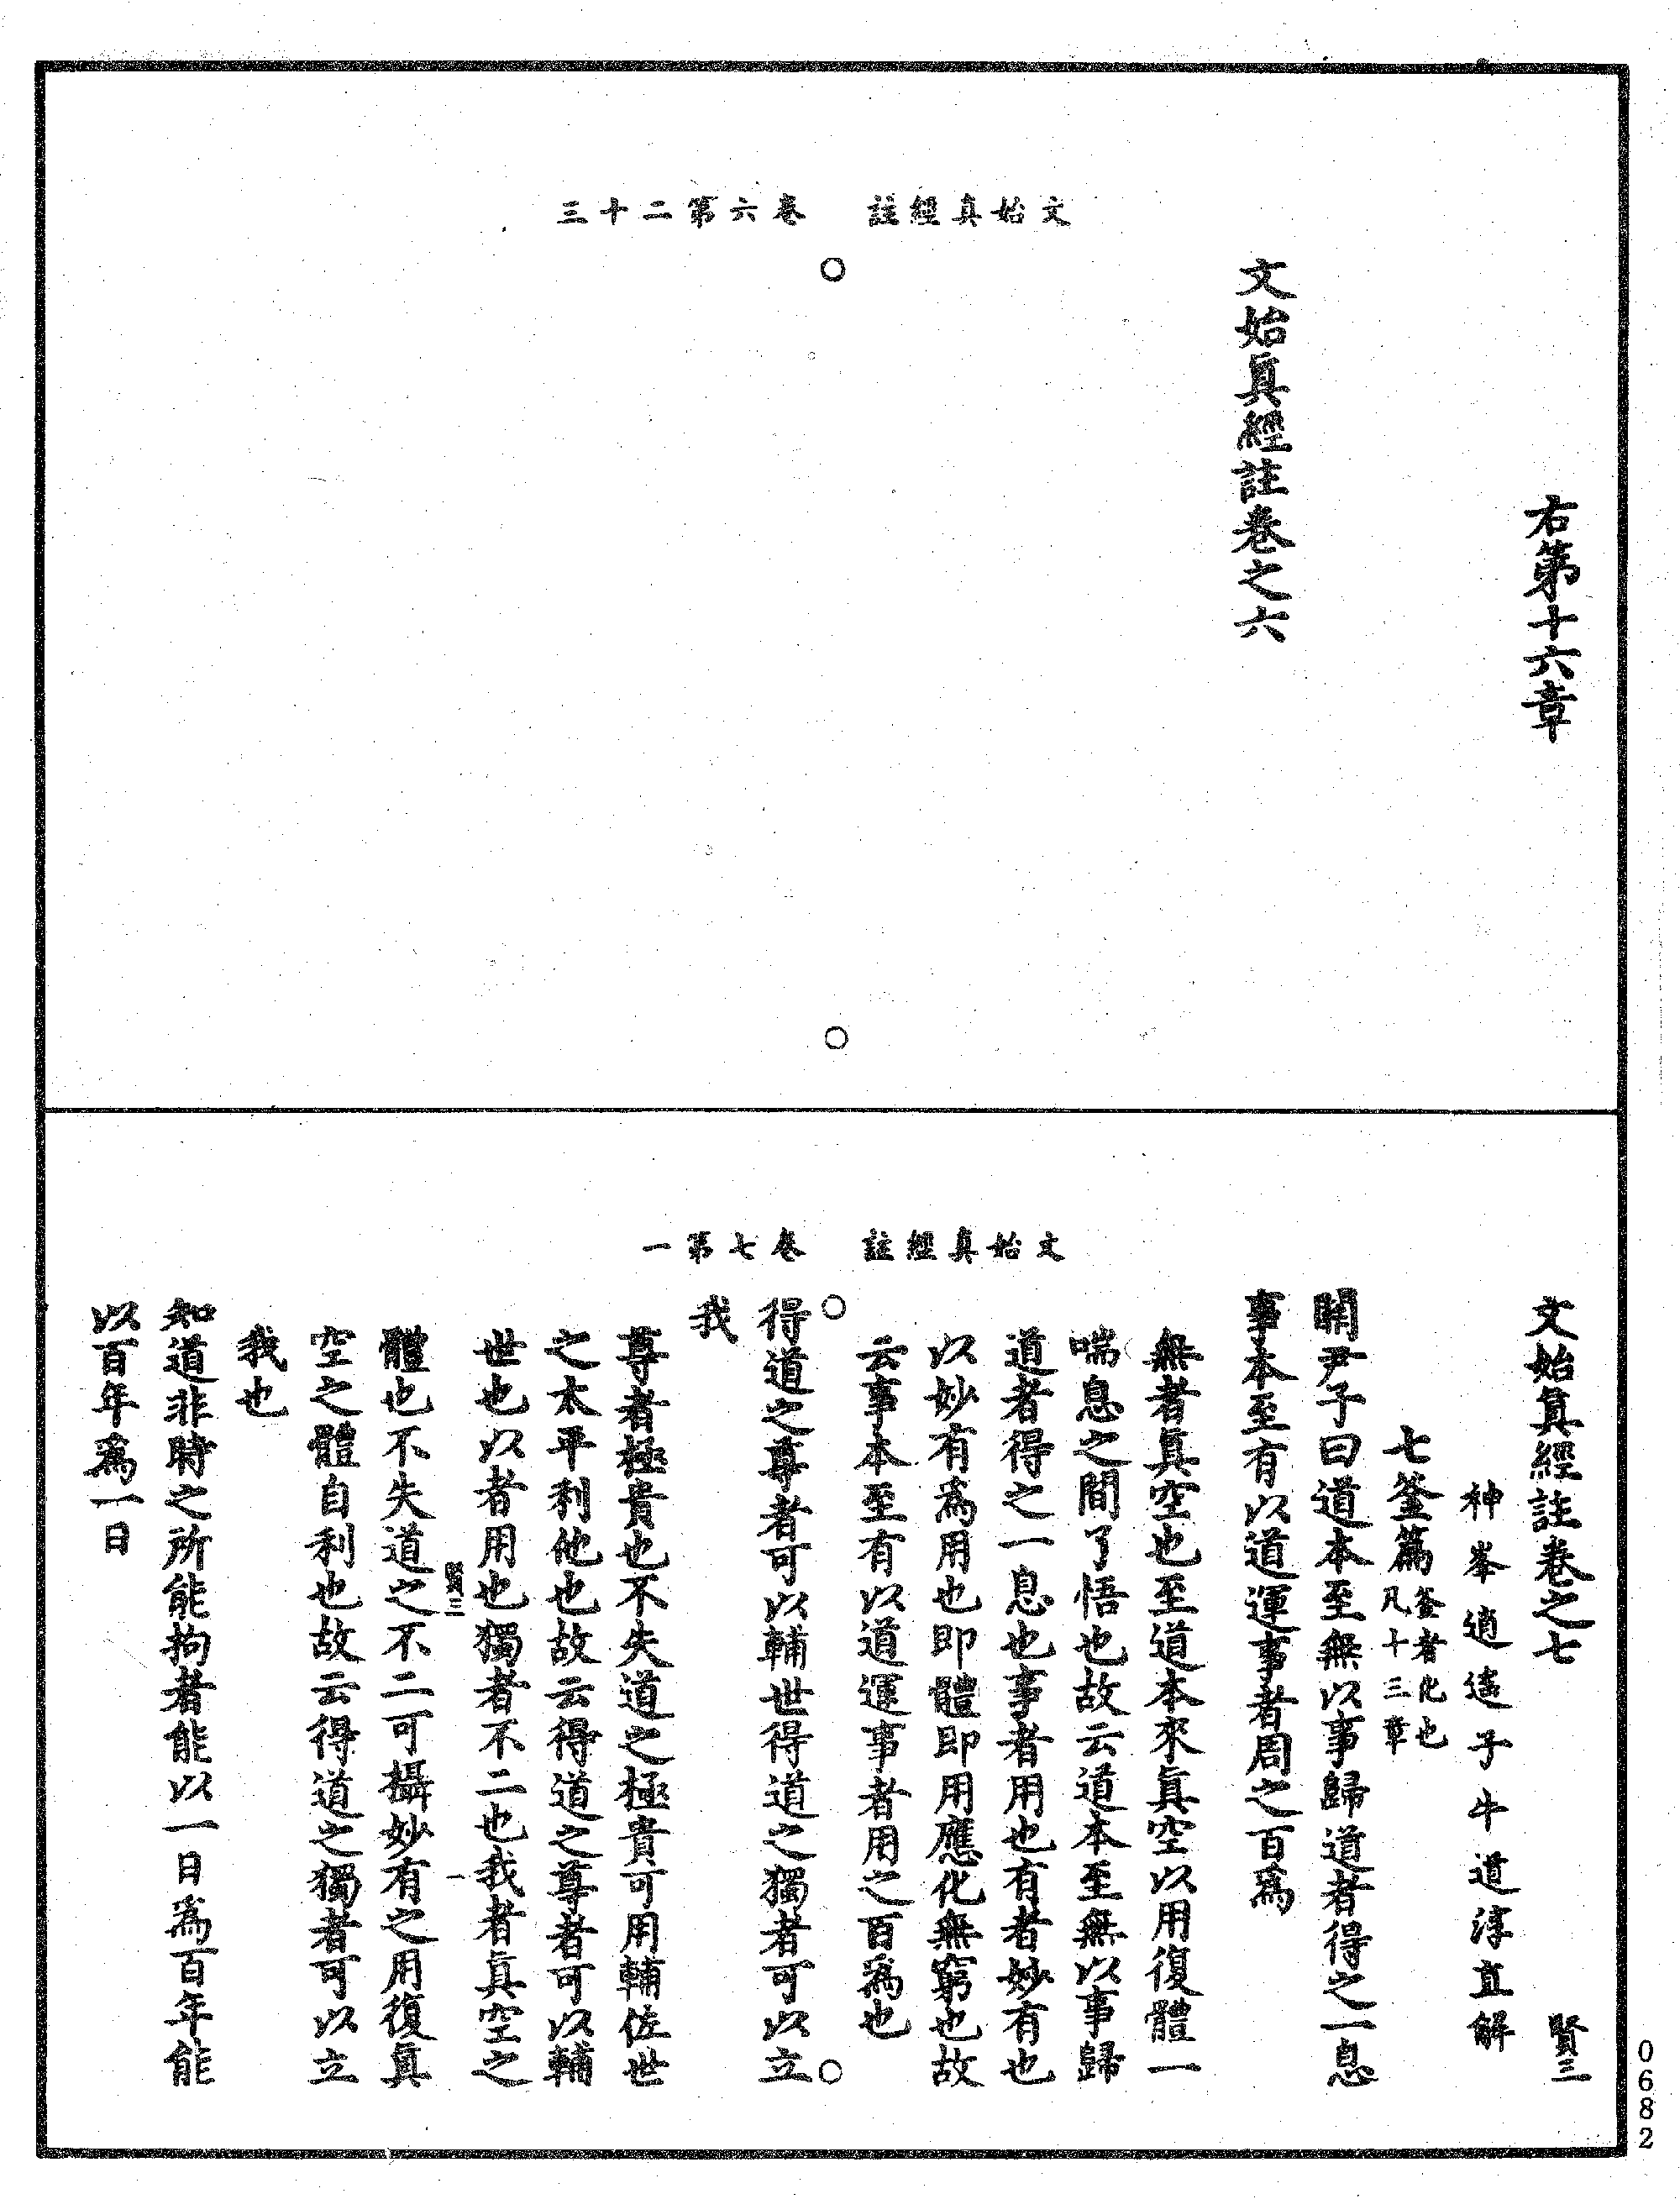 文始真經註　卷六第二十三
右第十六章
文始眞經註卷之六
文始真經註　卷七第一
文始眞經註卷之七　賢三
神峯逍遙子牛道淳直解
七釜篇 釜者化也 凡十三章
關尹子曰道本至無以事歸道者得之一息
事本至有以道運事者周之百爲
無者眞空也至道本來眞空以用復體一
喘息之間了悟也故云道本至無以事歸
道者得之一息也事者用也有者妙有也
以妙有爲用也即體即用應化無窮也故
云事本至有以道運事者用之百爲也
得道之尊者可以輔世得道之獨者可以立
我
尊者極貴也不失道之極貴可用輔佐世
之太平利他也故云得道之尊者可以輔
世也以者用也獨者不二也我者眞空之
賢三　一
體也不失道之不二可攝妙有之用復眞
空之體自利也故云得道之獨者可以立
我也
知道非時之所能拘者能以一日爲百年能
以百年爲一日
0682